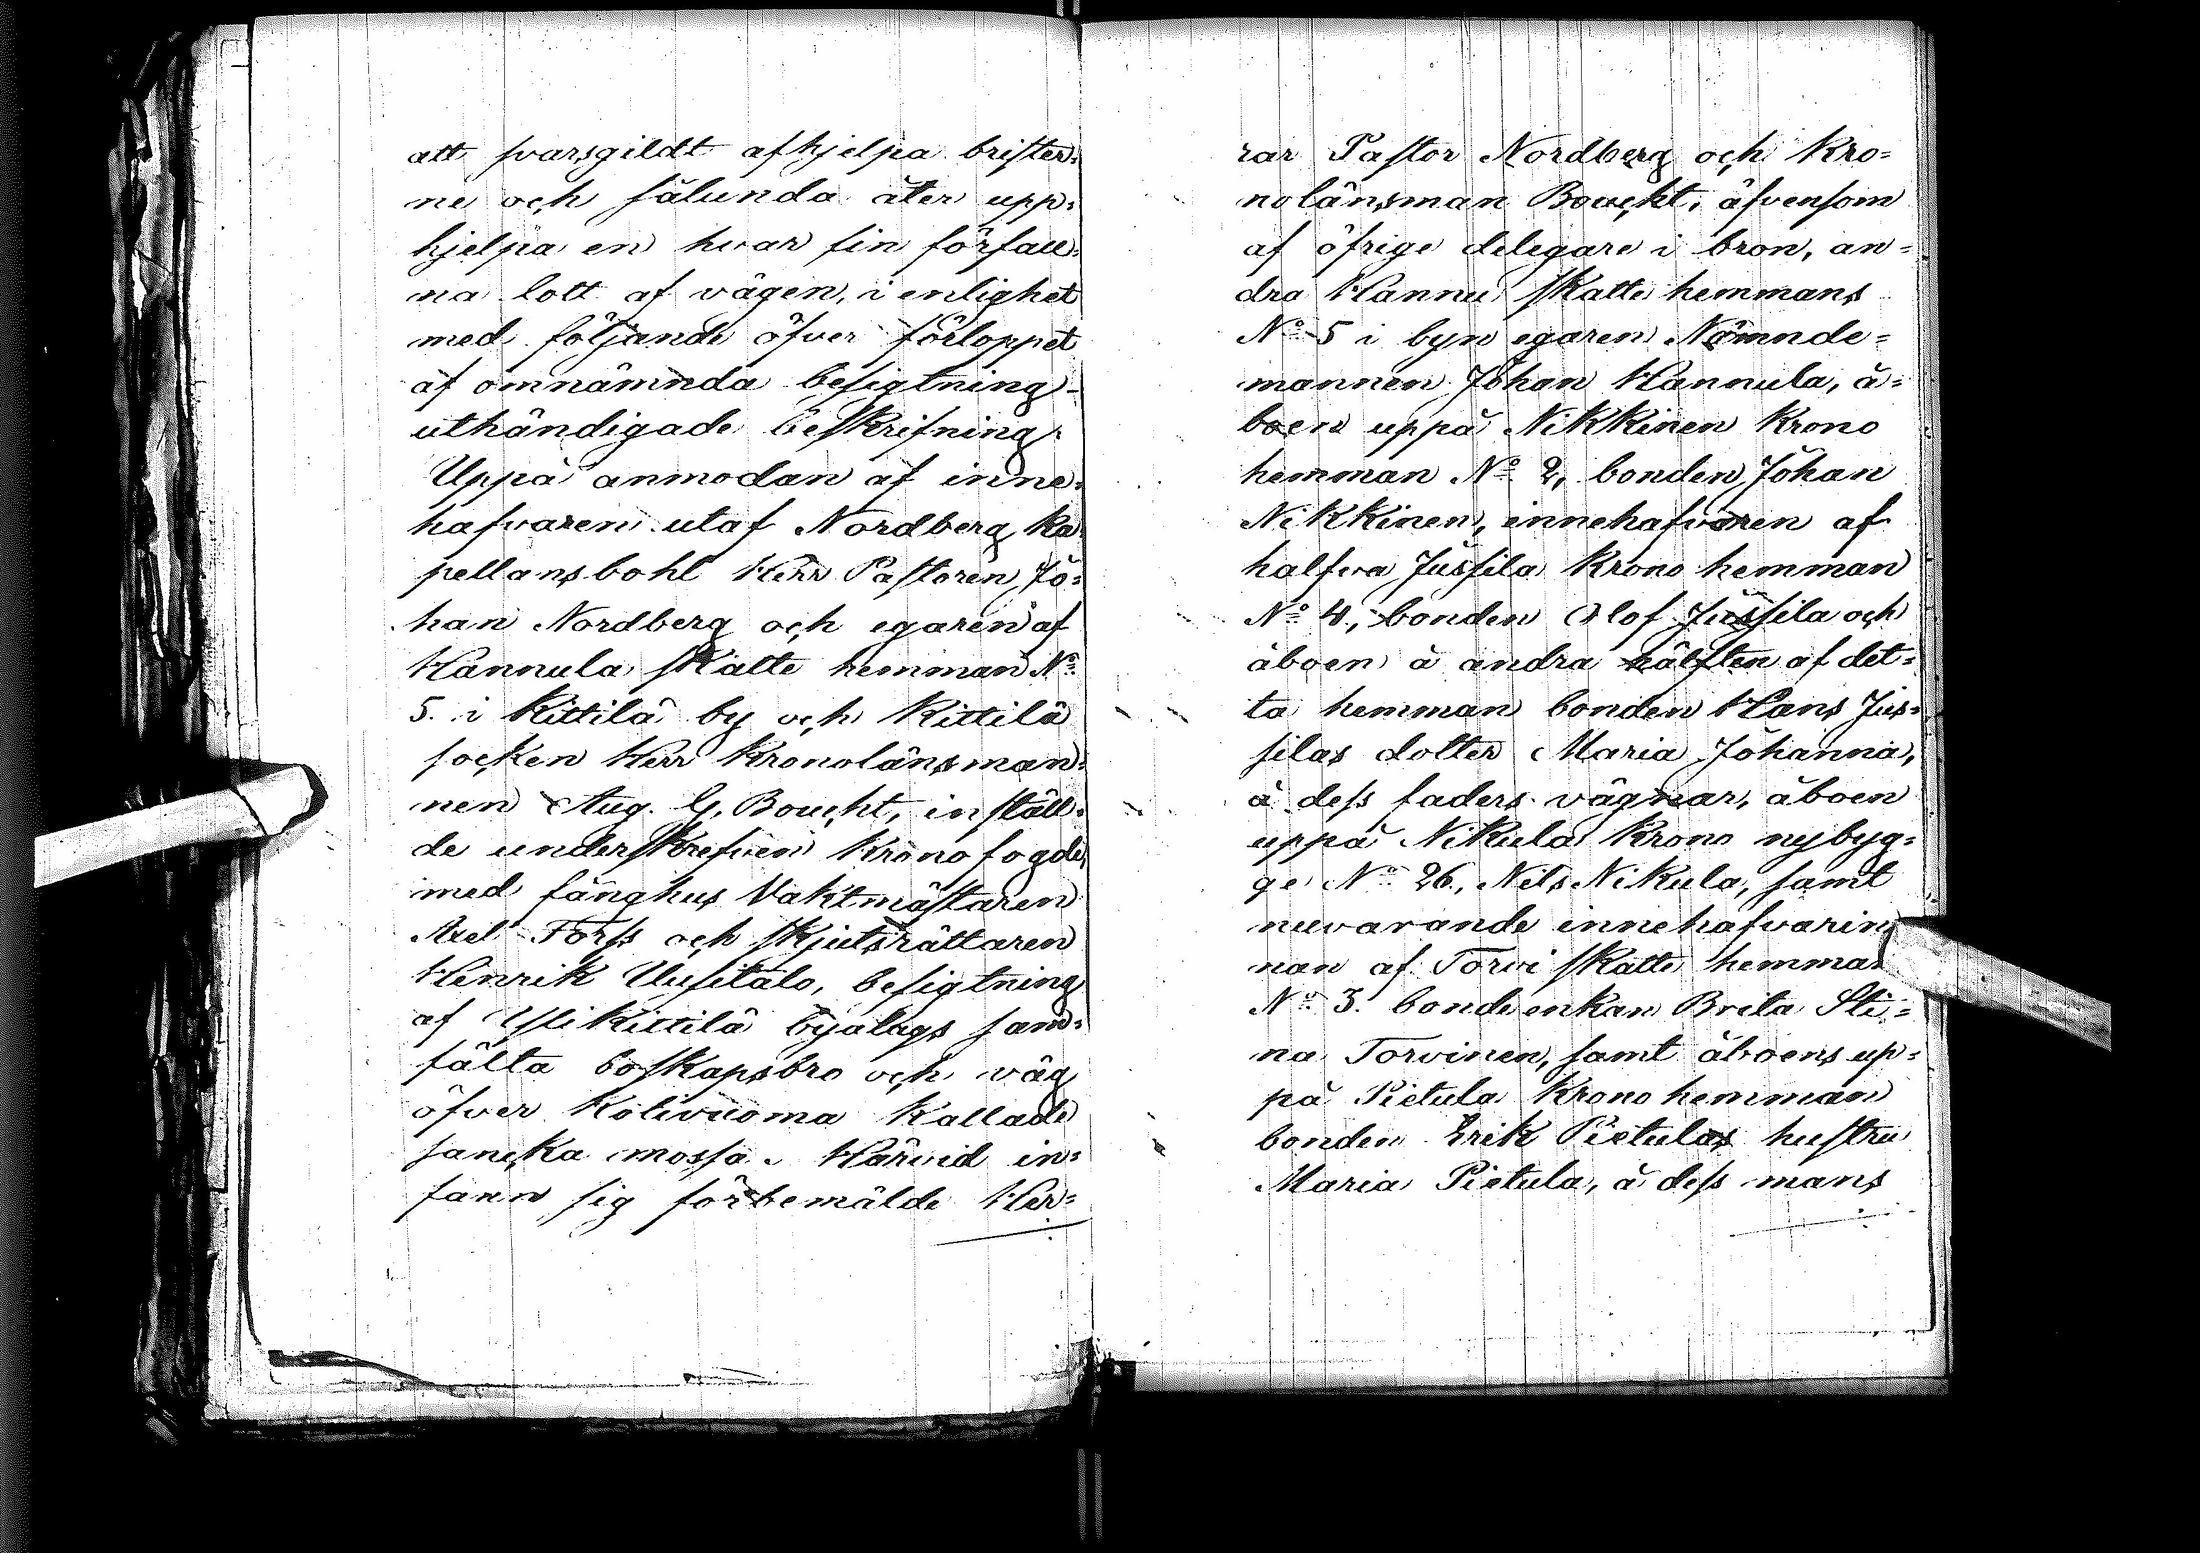 att svarsgildt afhjelpa brister=
ne och sålunda åter upp=
hjelpa en hvar sin förfall=
na lott af vägen, i enlighet
med följande öfver förloppet
af omnämnda besigtning
uthändigade beskrifning.
Uppå anmodan af inne=
hafvaren utaf Nordberg ka
pellansbohl Herr Pastoren Jo=
han Nordberg och egaren af
Hannula skatte hemman No
5. i Kittilä by och Kittilä
socken Herr Kronolänsman=
nen Aug. G. Boucht, inställ=
de underskrefven Kronofogde,
med fånghus Vaktmästaren
Axel Forss och skjutsrättaren
Henrik Uusitalo, besigtning
af Ylikittilä byalags sam=
fälta boskapsbro och väg
öfver Kolivuoma kallade
sancka mossa. Härvid in=
fann sig förbemälde Her=
rar Pastor Nordberg och Kro=
nolänsman Boucht, äfvensom
af öfrige delegare i bron, an=
dra Hannu skatte hemmans
No 5 i byn egaren Nämnde=
mannen Johan Hannula, å=
boen uppå Nikkinen Krono
hemman No 2, bonden Johan
Nikkinen, innehafvaren af
halfva Jussila Krono hemman
No 4, bonden Olof Jussila och
åboen å andra hälften af det=
ta hemman bonden Hans Jus=
silas dotter Maria Johanna,
å dess faders vägnar, åboen
uppå Nikula Krono nybyg=
ge No 26, Nils Nikula, samt
nuvarande innehafvarin
nan af Torvi skatte hemman
No 3. bonde enkan Brita Sti=
na Torvinen, samt åboens up=
på Pietula Krono hemman
bonden Erik Pietulas hustru
Maria Pietula, å dess mans